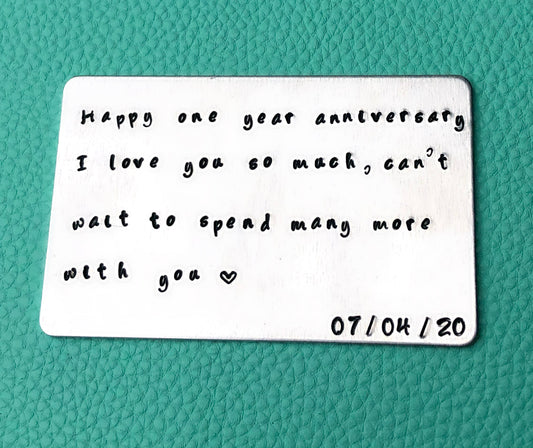 Happy one year anniversary
I love you so much, can't
wait to spend many more
with you ♡
07/04/20